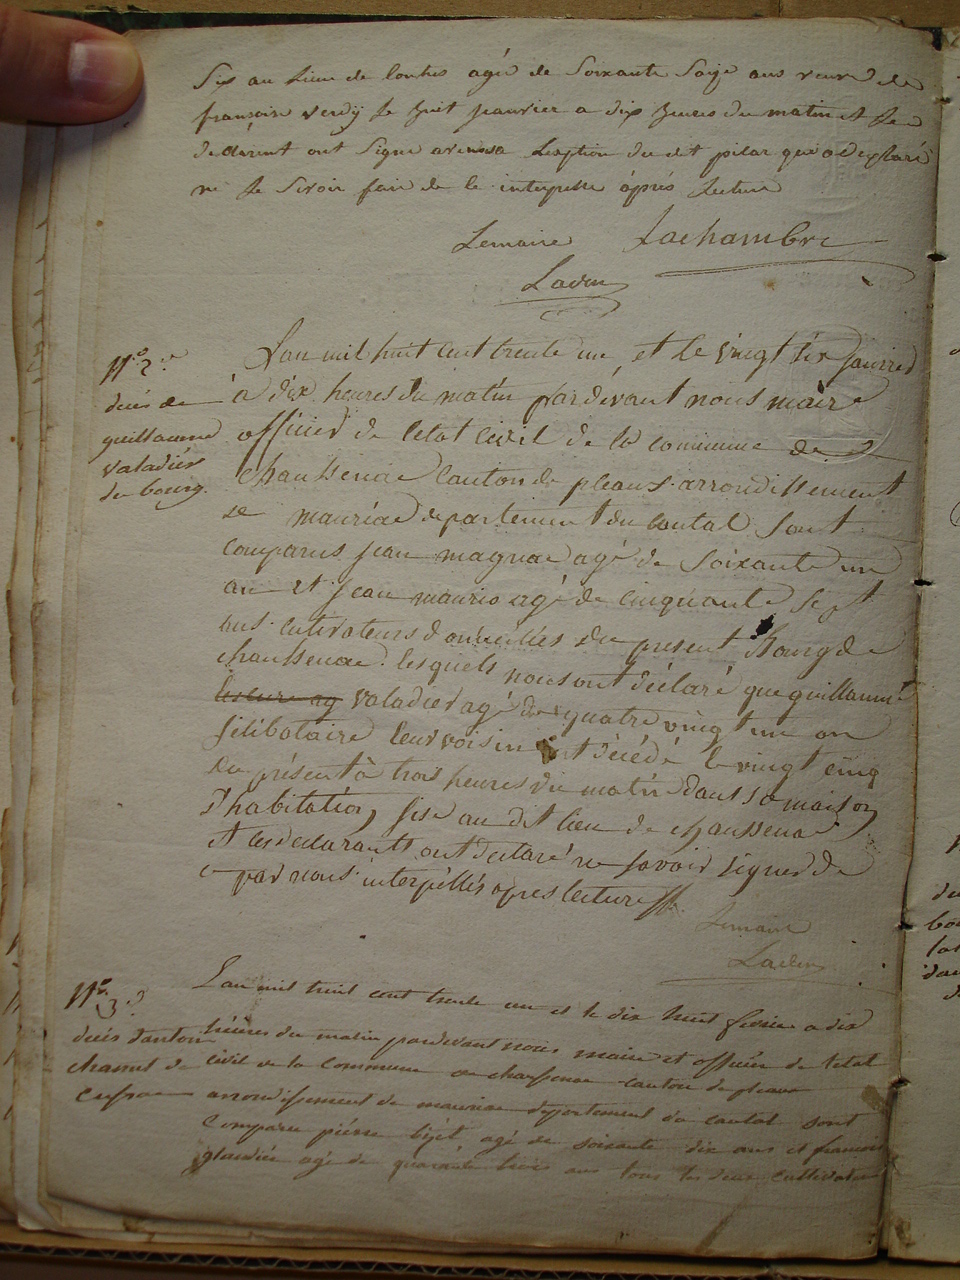 Six au Lieu de Contres agé de Soixante Saize ans veuve de
françoise verdy le huit janvier a dix heures du matin et les
déclarent ont Signé avenosa Lexption du dit pilar qui a déclaré
ne le Savoir fair de le interpesse après Lecture
Lemaire Lachambre
Lavem
N.o 2.e
décès de
guillaume
valadier
de bourg.
L'an mil huit cent trente un et le vingt six janvied
à dix heures du matin pardevant nous maire
officier de letat civil de la commune de
chaussenac canton de pleaux arrondissement
de mauriac departement du cantal sont
comparus jean magnac agé de soixante un
an et jean maurio agé de cinquante sept
ans cultivateurs domiciliés du present Bourg de
chaussenac lesquels nous ont déclaré que guillaume
valadier agé de quatre vingt un an
sélibataire leur voisin est décédé le vingt cinq
du présent à trois heures du matin dans sa maison
d'habitation sise au dit lieu de chaussenac
et les declarants ont declaré ne savoir signer de
ce par nous interpellés apres lecture
Lemaire
Lavem
N.o 3.e
décés dantoin
chamet de
cussac
L'an mil huit cent trente un et le dix huit fevrier a dix
heures du matin pardevant nous maire et officier de l'etat
civil de la commune de chaussenac canton de pleaux
arrondissement de mauriac departement du cantal sont
comparu piérre bijet agé de soixante dix ans et francois
glandier agé de quarante trois ans tous les deux cultivateur